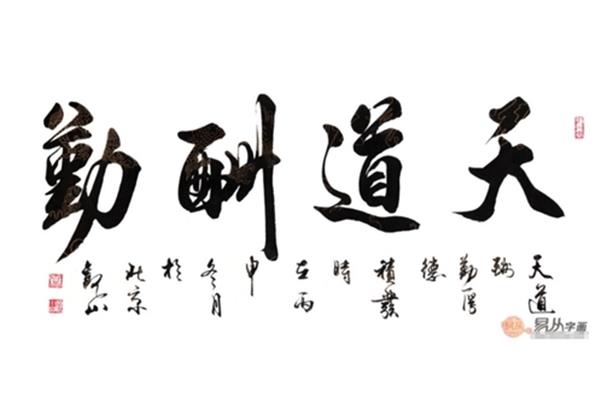 天道酬勤
天道
酬
勤厚
德
積發
時
在丙
申
冬月
於
北京
山
易从字画